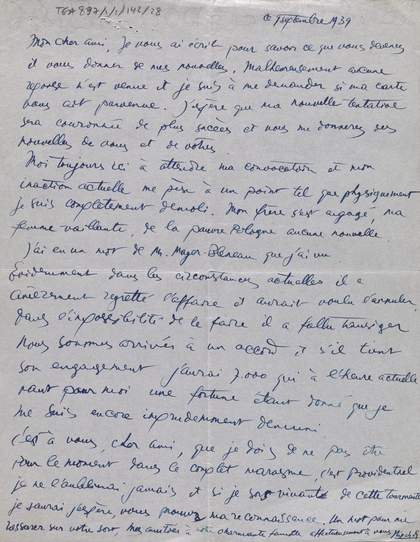 TGA 897/1/1/142/28
ce Septembre 1939
Mon cher ami, Je vous ai écrit pour savoir ce que vous devenez
et vous donner de mes nouvelles. Malheureusement aucune
reponse n'est venue et je suis à me demander si ma carte
vous est parvenue. J'espère que ma nouvelle tentative
sera couronnée de plus succès et vous me donnerez des
nouvelles de vous et de vôtres
Moi toujours ici à attendre ma convocation et mon
inaction actuelle me pèse à un point tel que physiquement
je suis complètement demoli. Mon frère s'est engagé, ma
femme vaillante, de la pauvre Pologne aucune nouvelle
J'ai eu un mot de Mr. Mayer que j'ai vu
Evidemment dans les circonstances actuelles il a
sincèrement regretté l'affaire et aurait voulu l'annuler.
Dans l'impossibilité de le faire il a fallu transiger
Nous sommes arrivés à un accord et s'il tient
son engagement j'aurai 7000 qui à l'heure actuelle
vaut pour moi une fortune étant donné que je
me suis encore imprudemment demuni
C'est à vous, cher ami, que je dois de ne pas être
pour le moment dans le complet marasme, c'est providentiel
je ne l'oublierai jamais et si je sors vivant de cette tourmente
je saurai j'espère, vous prouver ma reconnaissance. Un mot pour me
rassurer sur votre sort. Mes amitiés à votre charmante famille affectueusement à vous